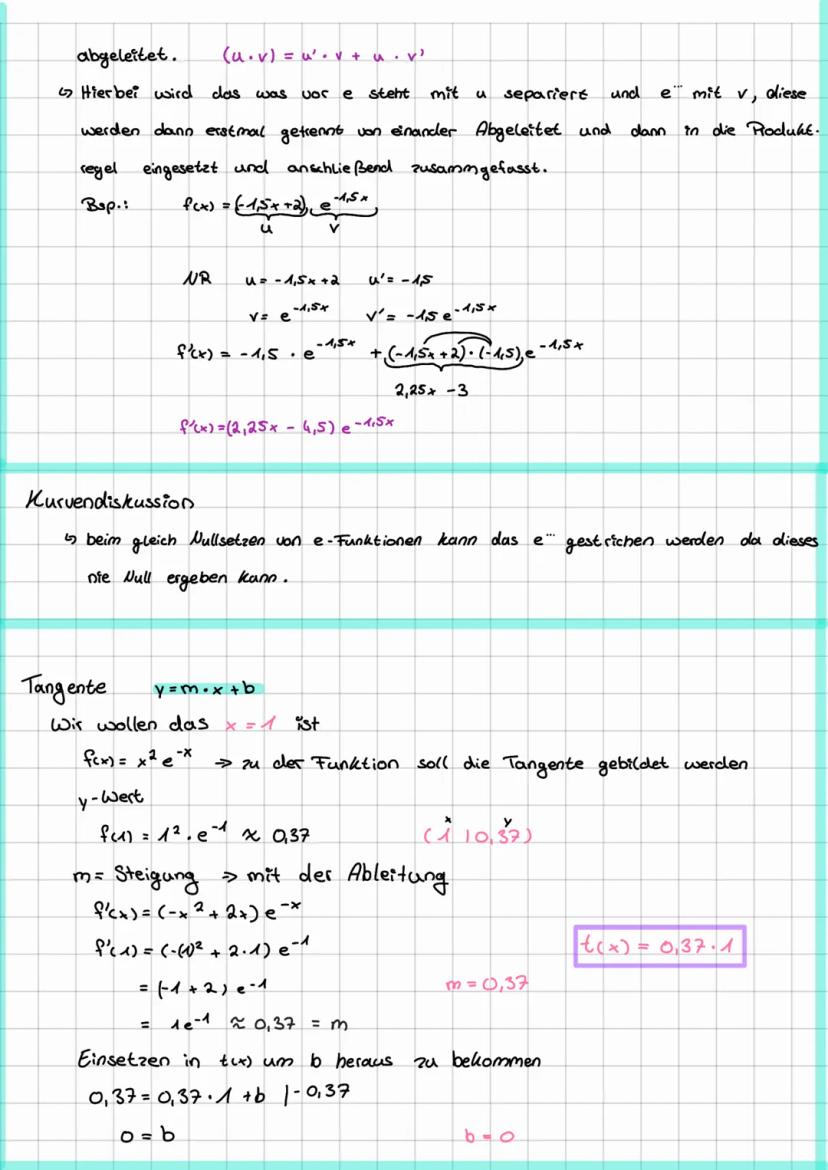 abgeleitet. (u · v) = u' · v + u · v'
↳ Hierbei wird das was vor e steht mit u separiert und e^{...} mit v, diese
werden dann erstmal getrennt von einander Abgeleitet und dann in die Produkt-
regel eingesetzt und anschließend zusammgefasst.
Bsp.: f(x) = (-1,5x +2) e^{-1,5x}
u v
NR u = -1,5x +2 u' = -1,5
v = e^{-1,5x} v' = -1,5 e^{-1,5x}
f'(x) = -1,5 · e^{-1,5x} + (-1,5x +2) · (-1,5) e^{-1,5x}
2,25x -3
f'(x) = (2,25x - 4,5) e^{-1,5x}
Kurvendiskussion
↳ beim gleich Nullsetzen von e-Funktionen kann das e^{...} gestrichen werden da dieses
nie Null ergeben kann.
Tangente y = m · x + b
Wir wollen das x = 1 ist
f(x) = x² e^{-x} → zu der Funktion soll die Tangente gebildet werden
y-Wert
x y
f(1) = 1² · e^{-1} ≈ 0,37 (1 | 0,37)
m = Steigung ⇒ mit der Ableitung
f'(x) = (-x² + 2x) e^{-x}
f'(1) = (-(1)² + 2·1) e^{-1} t(x) = 0,37 · 1
= (-1 + 2) e^{-1} m = 0,37
= 1e^{-1} ≈ 0,37 = m
Einsetzen in t(x) um b heraus zu bekommen
0,37 = 0,37 · 1 + b | - 0,37
0 = b b = 0